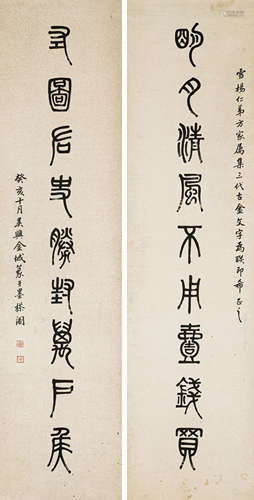 雪楊仁弟方家屬集三代古金文字為聯即希正之
明月清風不用壹錢買
左圖右史勝封萬戶侯
癸亥十月吳興金城篆于墨閣